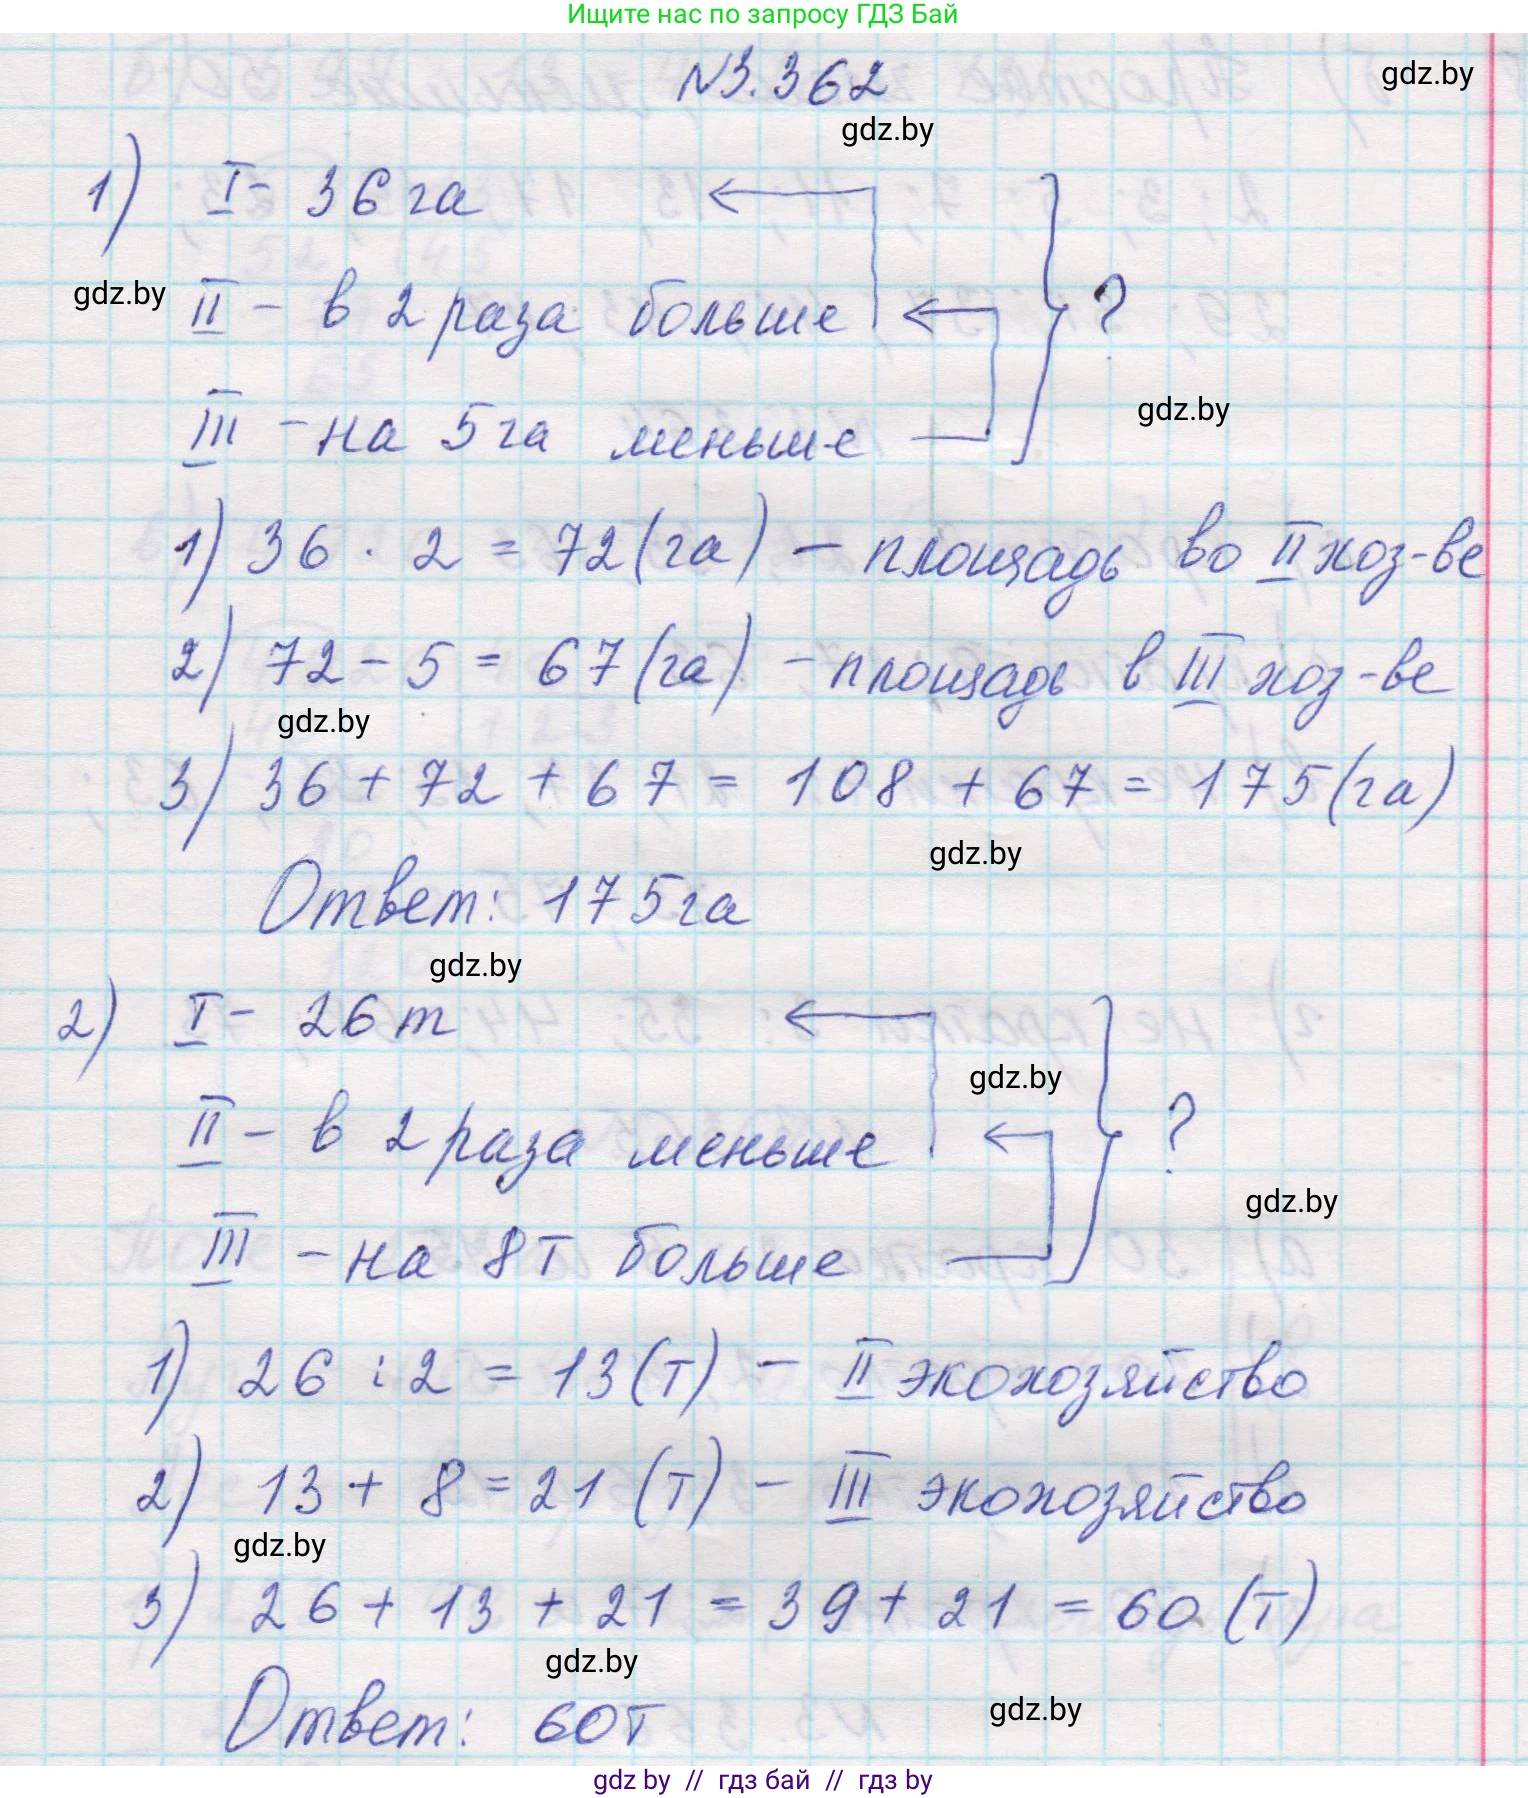 Ищите нас по запросу ГДЗ Бай
N3.362
gdz.by
gdz.by
1) I - 36 га
gdz.by
II - в 2 раза больше
?
gdz.by
III - на 5 га меньше
1) 36 · 2 = 72 (га) - площадь во II хоз-ве
2) 72 - 5 = 67 (га) - площадь в III хоз-ве
gdz.by
3) 36 + 72 + 67 = 108 + 67 = 175 (га)
gdz.by
Ответ: 175 га
gdz.by
2) I - 26 т
gdz.by
II - в 2 раза меньше
?
gdz.by
III - на 8 т больше
1) 26 : 2 = 13 (т) - II экохозяйство
2) 13 + 8 = 21 (т) - III экохозяйство
gdz.by
3) 26 + 13 + 21 = 39 + 21 = 60 (т)
gdz.by
Ответ: 60 т
gdz.by
gdz by // гдз бай // гдз by